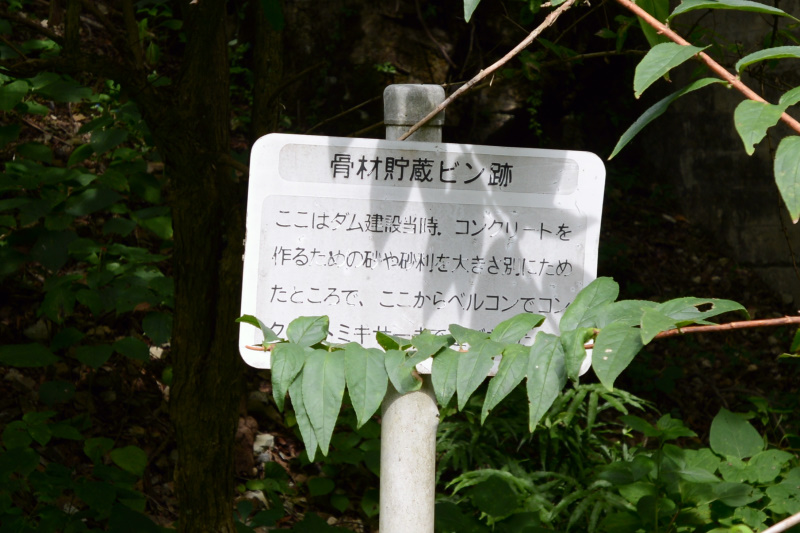 骨材貯蔵ビン跡
ここはダム建設当時．コンクリートを
作るための砂や砂利を大きさ別にため
たところで、ここからベルコンでコン
クリートミキサーまで